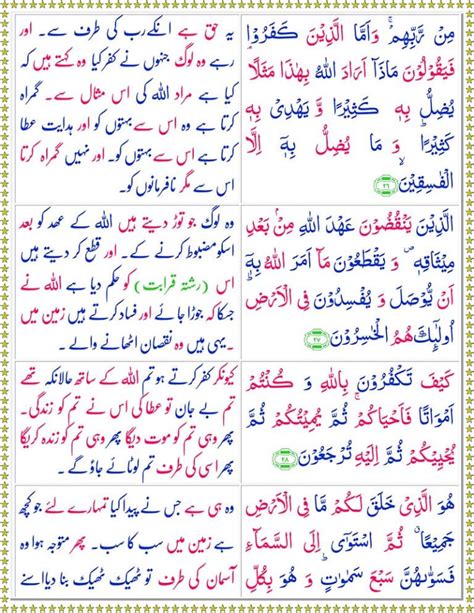 مِنْ رَّبِّهِمْ ۚ وَاَمَّا الَّذِيْنَ كَفَرُوْا
فَيَقُوْلُوْنَ مَاذَاۤ اَرَادَ اللّٰهُ بِهٰذَا مَثَلًا
يُضِلُّ بِهٖ كَثِيْرًا وَّ يَهْدِىْ بِهٖ
كَثِيْرًا ؕ وَ مَا يُضِلُّ بِهٖۤ اِلَّا
الْفٰسِقِيْنَ ﴿۲۶﴾
یہ حق ہے انکے رب کی طرف سے۔ اور
رہے وہ لوگ جنہوں نے کفر کیا وہ کہتے ہیں کہ
کیا ہے مراد اللہ کی اس مثال سے۔ گمراہ
کرتا ہے اس سے بہتوں کو۔ اور ہدایت عطا
کرتا ہے اس سے بہتوں کو۔ اور نہیں گمراہ کرتا
اس سے مگر نافرمانوں کو۔
الَّذِيْنَ يَنْقُضُوْنَ عَهْدَ اللّٰهِ مِنْۢ بَعْدِ
مِيْثَاقِهٖ ۪ وَ يَقْطَعُوْنَ مَاۤ اَمَرَ اللّٰهُ بِهٖۤ
اَنْ يُّوْصَلَ وَ يُفْسِدُوْنَ فِى الْاَرْضِ ؕ
اُولٰٓئِكَ هُمُ الْخٰسِرُوْنَ ﴿۲۷﴾
وہ لوگ جو توڑ دیتے ہیں اللہ کے عہد کو بعد
اسکو مضبوط کرنے کے۔ اور قطع کر دیتے ہیں
اس (رشتہ قرابت) کو حکم دیا ہے اللہ نے
جسکا کہ جوڑا جائے اور فساد کرتے ہیں زمین میں
۔ یہی ہیں وہ نقصان اٹھانے والے۔
كَيْفَ تَكْفُرُوْنَ بِاللّٰهِ وَ كُنْتُمْ
اَمْوَاتًا فَاَحْيَاكُمْ ۚ ثُمَّ يُمِيْتُكُمْ ثُمَّ
يُحْيِيْكُمْ ثُمَّ اِلَيْهِ تُرْجَعُوْنَ ﴿۲۸﴾
کیونکر کفر کرتے ہو تم اللہ کے ساتھ حالانکہ تھے
تم بے جان تو عطا کی اس نے تم کو زندگی۔
پھر وہی تم کو موت دیگا پھر وہی تم کو زندہ کریگا
پھر اسی کی طرف تم لوٹائے جاؤ گے۔
هُوَ الَّذِىْ خَلَقَ لَكُمْ مَّا فِى الْاَرْضِ
جَمِيْعًا ۗ ثُمَّ اسْتَوٰٓى اِلَى السَّمَآءِ
فَسَوّٰٮهُنَّ سَبْعَ سَمٰوٰتٍ ؕ وَ هُوَ بِكُلِّ
وہ ہی ہے جس نے پیدا کیا تمہارے لئے جو کچھ
ہے زمین میں سب کا سب۔ پھر متوجہ ہوا وہ
آسمان کی طرف تو ٹھیک ٹھیک بنا دیا اسنے